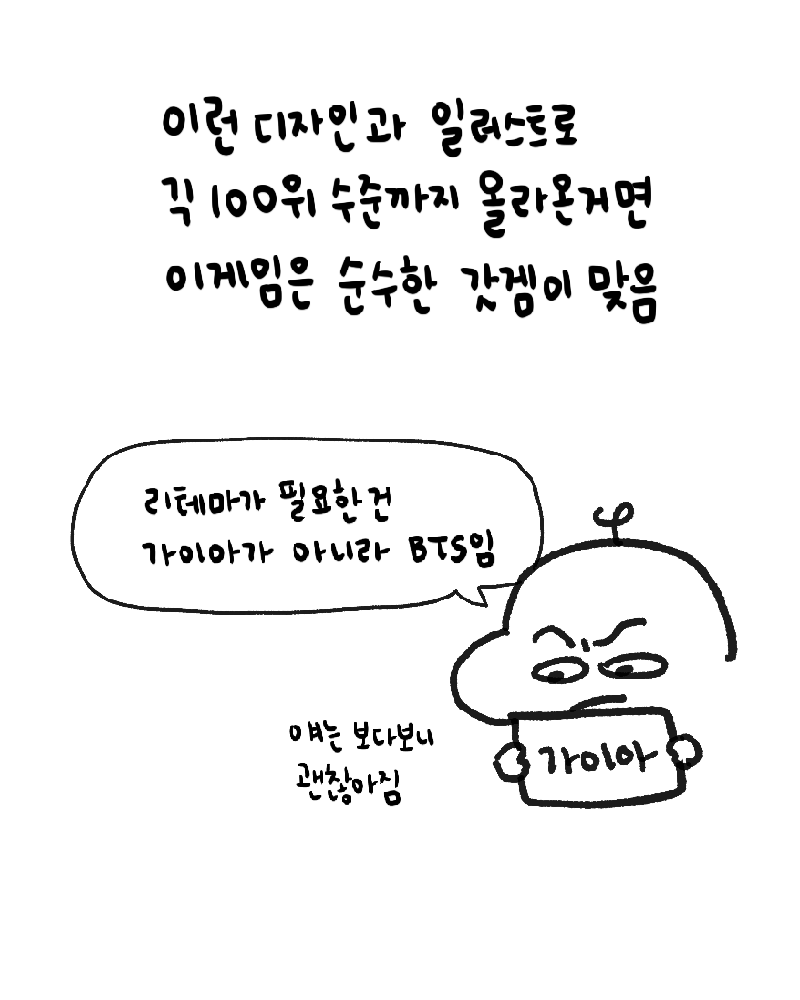 이런 디자인과 일러스트로
긱 100위 수준까지 올라온거면
이게임은 순수한 갓겜이 맞음
리테마가 필요한건
가이아가 아니라 BTS임
가이아
얘는 보다보니
괜찮아짐